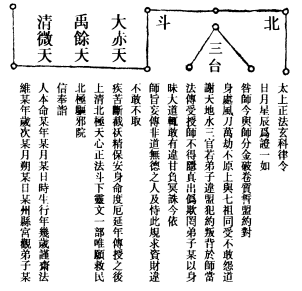 北
斗
三台
清微天
禹餘天
大赤天
維某年歲次某月朔某日某州縣宮觀弟子某
人本命某年某月某日時生行年幾歲謹齋法
信奉詣
北極驅邪院
上清北極天心正法斗下靈文一部唯願救民
疾苦斷截妖精保安身命度厄延年傳授之後
不敢不取
師旨妄傳非道無德之人及恃此規求資財違
昧大道輒敢有違甘負冥誅今依
法傳受授師不得隱真出僞欺罔弟子某以身
謝天地水三官若弟子違盟犯約叛背於師當
身處風刀萬劫不原上與七祖同受不敢怨道
咎師今與師分金破券質誓盟約對
日月星辰爲證一如
太上正法玄科律令